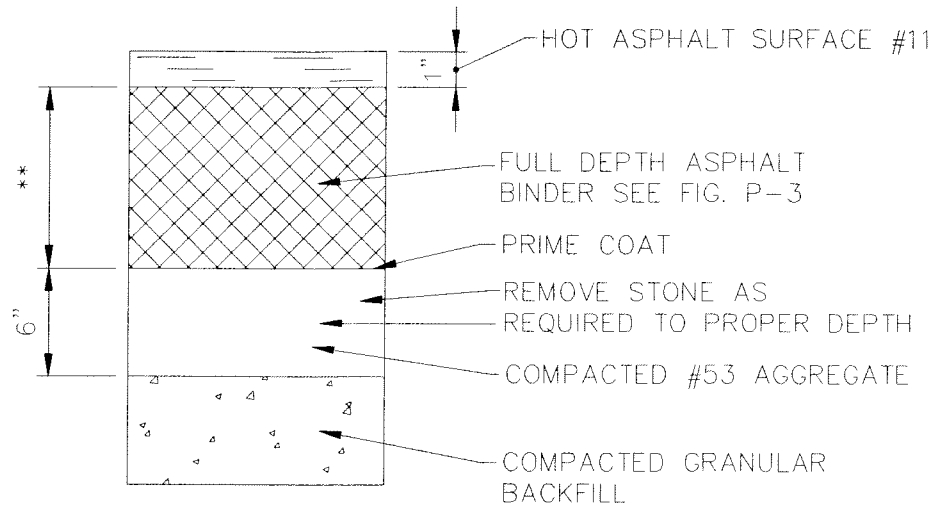 HOT ASPHALT SURFACE #11
1"
**
FULL DEPTH ASPHALT
BINDER SEE FIG. P-3
PRIME COAT
6"
REMOVE STONE AS
REQUIRED TO PROPER DEPTH
COMPACTED #53 AGGREGATE
COMPACTED GRANULAR
BACKFILL